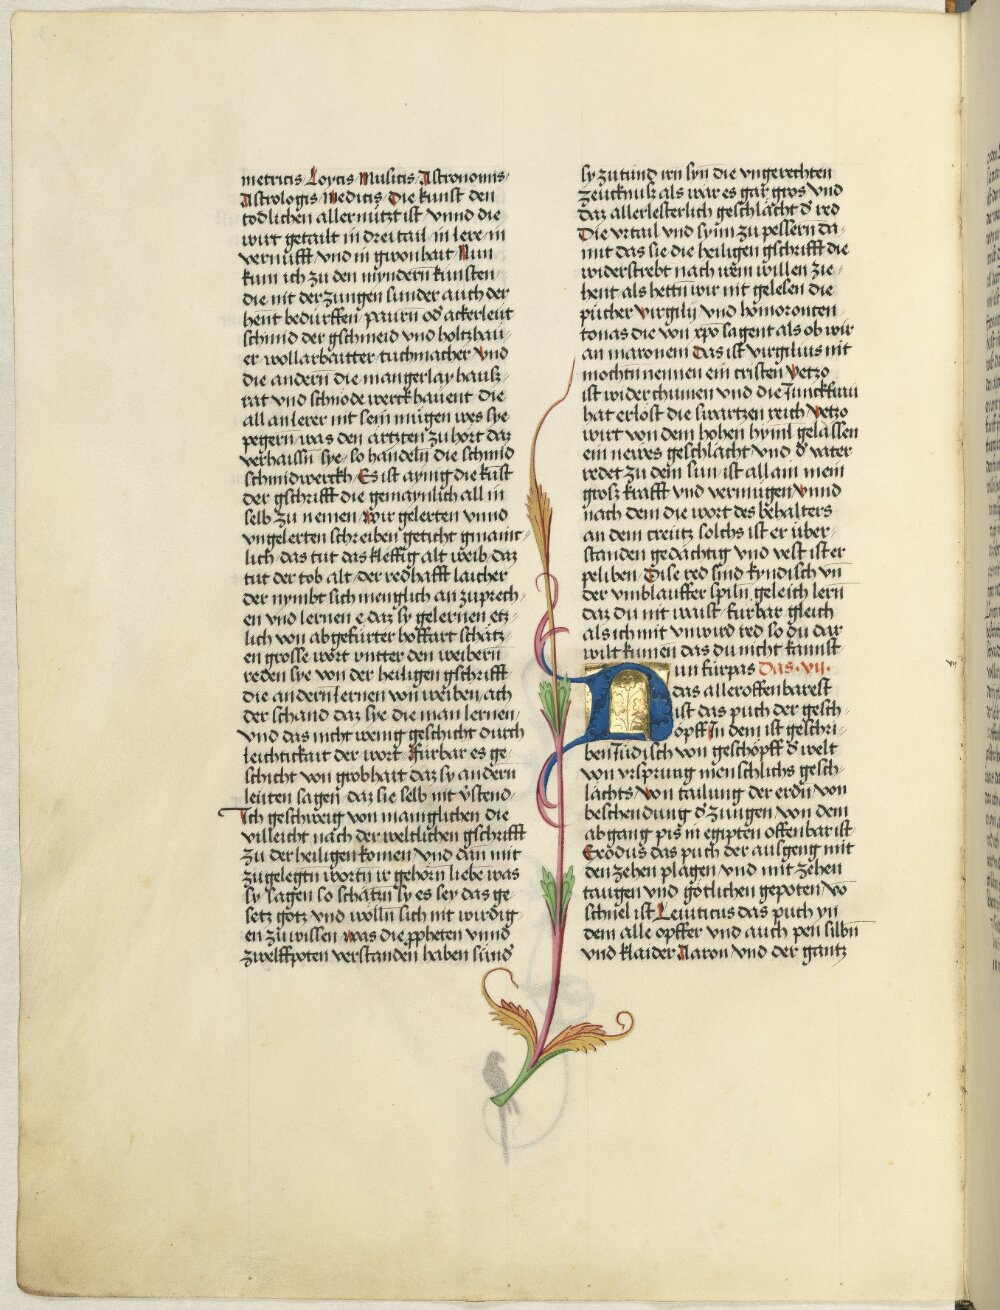 metricis Loycis Musicis Astronomis
Astrologis Medicis Die kunst den
todlichen aller nützt ist vnnd die
wirt getailt in drei tail in lere in
vernüfft vnd in gwonhait Nun
kum ich zu den myndern kunsten
die nit der zungen sunder auch der
hent bedürffen paurn od ackerleut
schmid der gschmeid vnd holtzhau
er wollarbaitter tuchmacher vnd
die andern die mangerlay hausz
rat vnd schnöde werck hauent die
all an lerer nit sein mügen wes sye
pegern was den artzten zu hört daz
verhaissn sye so handeln die schmid
schmidwerckh Es ist aynig die kūst
der gschrifft die gemaynlich all in
selb zu nemen wir gelerten vnnd
vngelerten schreiben geticht gmaint
lich das tut das kleffig alt weib daz
tut der tob alt der redhafft laicher
der nymbt sich menglich an zuprech
en vnd lernen e daz sy gelernen etz
lich von abgefürter hoffart schätz
en grosse wort vntter den weibern
reden sye von der heiligen gschrifft
die andern lernen von weiben ach
der schand daz sye die man lernen
vnd das nicht wenig geschicht durch
leichtickait der wort fürbar es ge
schicht von grobhait daz sy andern
leuten sagen daz sie selb nit v̈stend
Ich geschweig von mainglichen die
villeicht nach der weltlichen gschrifft
zu der heiligen komen vnd dan mit
zugelegtn wortn ir gehorn liebe was
sy sagen so schätzn sy es sey das ge
setz gotz vnd wölln sich nit wirdig
en zu wissen was die ꝓpheten vnnd
zwelffpoten verstanden haben sund
sy zutund irn syn die vngerechten
zeucknusz als wär es gar gros vnd
daz allerlesterlich geschlächt d̕ red
Die vrtail vnd synn zu pessern da
mit das sie die heiligen gschrifft die
widerstrebt nach irem willen zie
hent als hettn wir nit gelesen die
pücher virgilij vnd homoronten
tonas die von xpo sagent als ob wir
an maronem Das ist virgilius nit
mochtn nennen ein cristen yetzo
ist wider chumen vnd die Junckfrau
hat erlöst die swartzen reich yetzo
wirt von dem hohen hyml gelassen
ein newes geschlächt vnd d̕ vater
redet zu dem sun ist allain mein
grosz krafft vnd vermügen vnnd
nach dem die wort des behalters
an dem creütz solchs ist er über
standen gedächtig vnd vest ist er
peliben Dise red sind kyndisch vn̄
der vmblauffer spiln geleich lern
daz du nit waist fürbar gleich
als ich mit vnwird red so du dar
wilt kumen das du nicht kannst
un fürpas Das · vij ·
Das alleroffenbarest
ist das puch der gesch
opff Jn dem ist geschri
ben Jüdisch von geschöpff d̕ welt
von vrsprung menschlichs gesch
lächts Von tailung der erdn von
beschendung d̕ zungen von dem
abgang pis in egipten offenbar ist
Exodus das puch der ausgeng mit
den zehen plagen vnd mit zehen
taugen vnd götlichen gepoten vō
schnel ist Leuiticus das puch yn
dem alle opffer vnd auch pen silbn
vnd klaider Aaron vnd der gantz